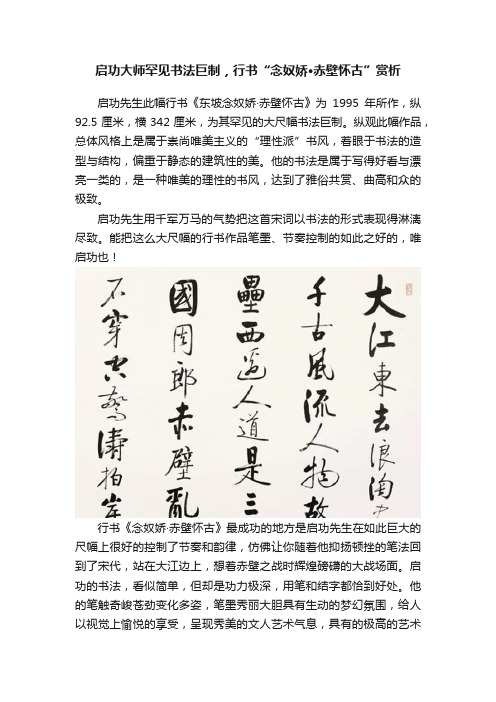 启功大师罕见书法巨制，行书“念奴娇•赤壁怀古”赏析
启功先生此幅行书《东坡念奴娇·赤壁怀古》为 1995 年所作，纵
92.5 厘米，横 342 厘米，为其罕见的大尺幅书法巨制。纵观此幅作品，
总体风格上是属于崇尚唯美主义的“理性派”书风，着眼于书法的造
型与结构，偏重于静态的建筑性的美。他的书法是属于写得好看与漂
亮一类的，是一种唯美的理性的书风，达到了雅俗共赏、曲高和众的
极致。
启功先生用千军万马的气势把这首宋词以书法的形式表现得淋漓
尽致。能把这么大尺幅的行书作品笔墨、节奏控制的如此之好的，唯
启功也！
大江東去浪淘
千古風流人物故
壘西邊人道是三
國周郎赤壁亂
石穿空驚濤拍岸
行书《念奴娇·赤壁怀古》最成功的地方是启功先生在如此巨大的
尺幅上很好的控制了节奏和韵律，仿佛让你随着他抑扬顿挫的笔法回
到了宋代，站在大江边上，想着赤壁之战时辉煌磅礴的大战场面。启
功的书法，看似简单，但却是功力极深，用笔和结字都恰到好处。他
的笔触奇峻苍劲变化多姿，笔墨秀丽大胆具有生动的梦幻氛围，给人
以视觉上愉悦的享受，呈现秀美的文人艺术气息，具有的极高的艺术